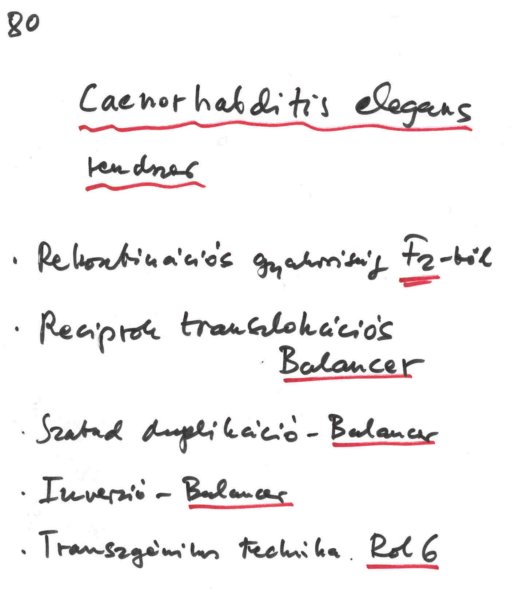 80
Caenorhabditis elegans
rendszer
· Rekombinációs gyakoriság F2-ből
· Reciprok transzlokációs
Balancer
· Szabad duplikáció - Balancer
· Inverzió - Balancer
· Transzgénikus technika. Rol 6